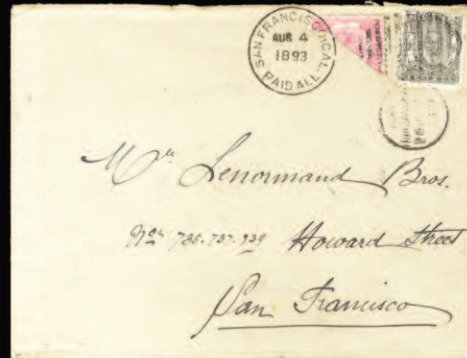 SAN FRANCISCO, CAL.
AUG 4
1893
PAID ALL.
Mr Lenormand Bros.
Nos 735-737-739 Howard Street
San Francisco